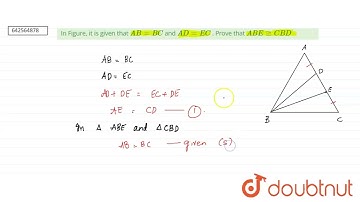 642564878
In Figure, it is given that AB = BC and AD = EC . Prove that ABE ≅ CBD .
AB = BC
AD = EC
AD + DE = EC + DE
AE = CD — 1.
In △ ABE and △ CBD
AB = BC — given (S)
A
D
E
B
C
doubtnut